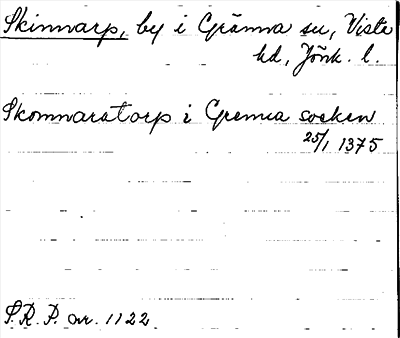 Skinnarp, by i Gränna sn, Vista
hd, Jönk. l.
Skomnaratorp i Gremea socken
25/1 1375
S.R.P. nr. 1122